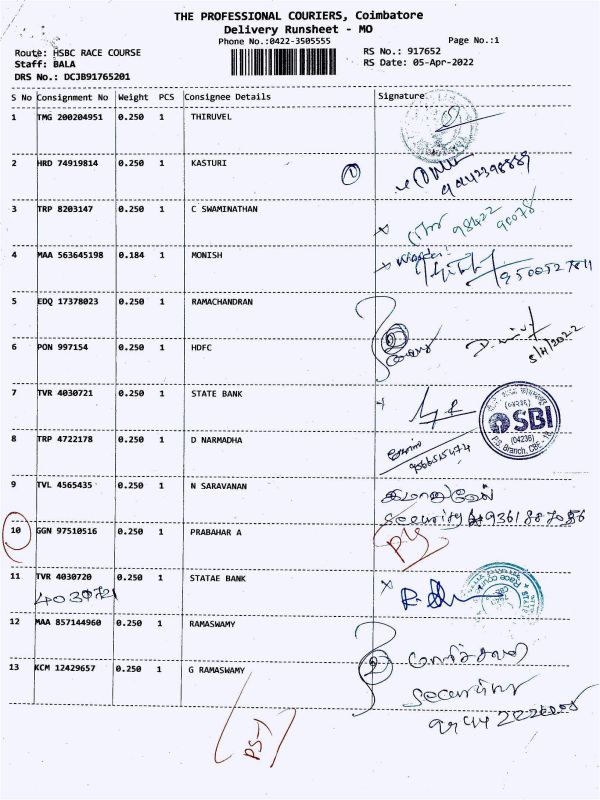 THE PROFESSIONAL COURIERS, Coimbatore
Delivery Runsheet - MO
Phone No.:0422-3505555 Page No.:1
Route: HSBC RACE COURSE RS No.: 917652
Staff: BALA RS Date: 05-Apr-2022
DRS No.: DCJB91765201
S No Consignment No Weight PCS Consignee Details Signature
1 TMG 200204951 0.250 1 THIRUVEL
2 HRD 74919814 0.250 1 KASTURI 1
3 TRP 8203147 0.250 1 C SWAMINATHAN 98422 90078
4 MAA 563645198 0.184 1 MONISH
5 EDQ 17378023 0.250 1 RAMACHANDRAN
6 PON 997154 0.250 1 HDFC 5/4/2022
7 TVR 4030721 0.250 1 STATE BANK
SBI
(04236)
P.S. Branch, CBE - 18
8 TRP 4722178 0.250 1 D NARMADHA
9566515474
9 TVL 4565435 0.250 1 N SARAVANAN
Security 9361887056
10 GGN 97510516 0.250 1 PRABAHAR A
11 TVR 4030720 0.250 1 STATAE BANK
4030721
12 MAA 857144960 0.250 1 RAMASWAMY
2
13 KCM 12429657 0.250 1 G RAMASWAMY
Security